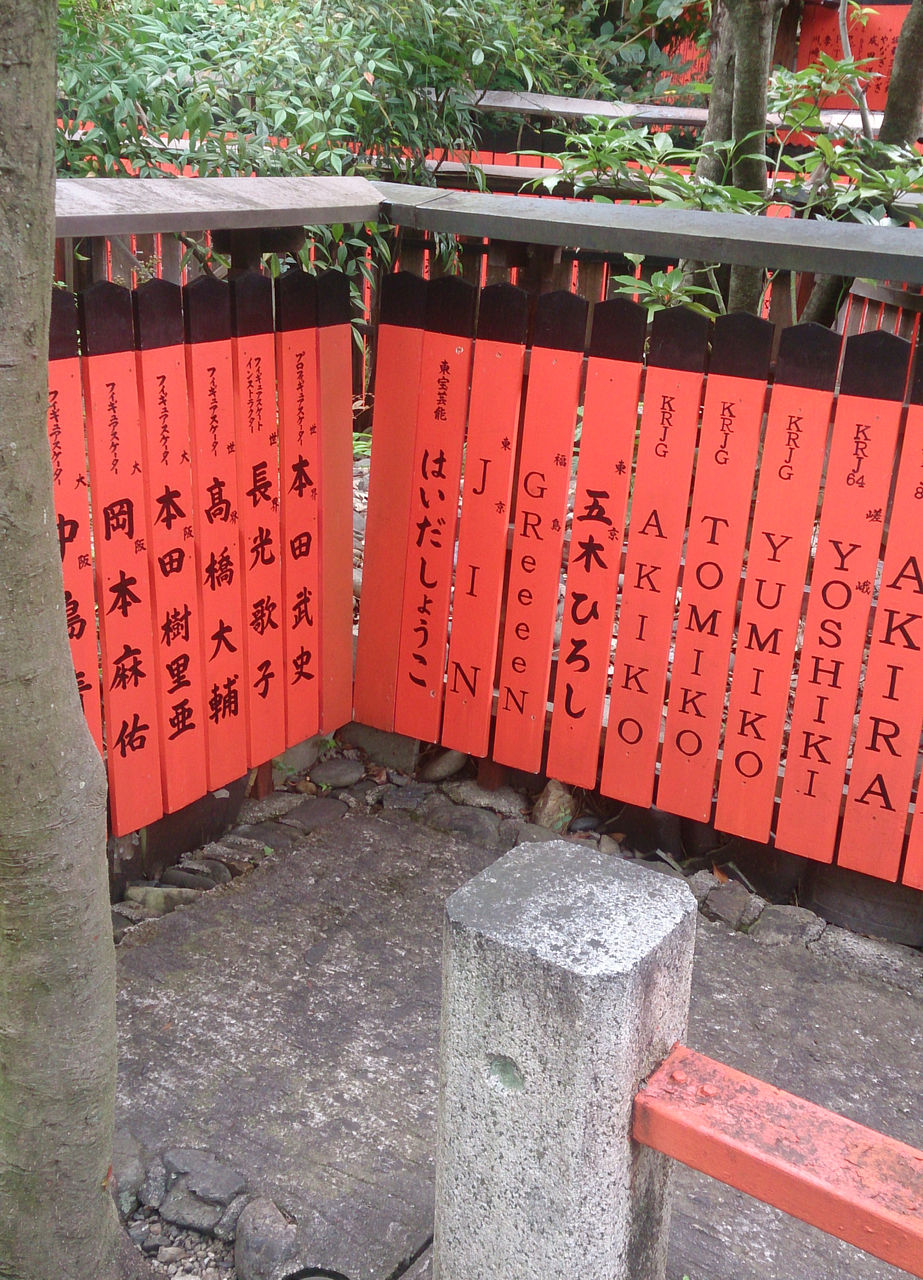 フィギュアスケーター 大阪
フィギュアスケーター 大阪 岡本麻佑
フィギュアスケーター 大阪 本田樹里亜
フィギュアスケーター 世界 髙橋大輔
フィギュアスケートインストラクター 世界 長光歌子
プロフィギュアスケーター 世界 本田武史
東宝芸能 はいだしょうこ
東京 JIN
福島 GReeeeN
東京 五木ひろし
KRJG AKIKO
KRJG TOMIKO
KRJG YUMIKO
KRJ64 嵯峨 YOSHIKI
AKIRA